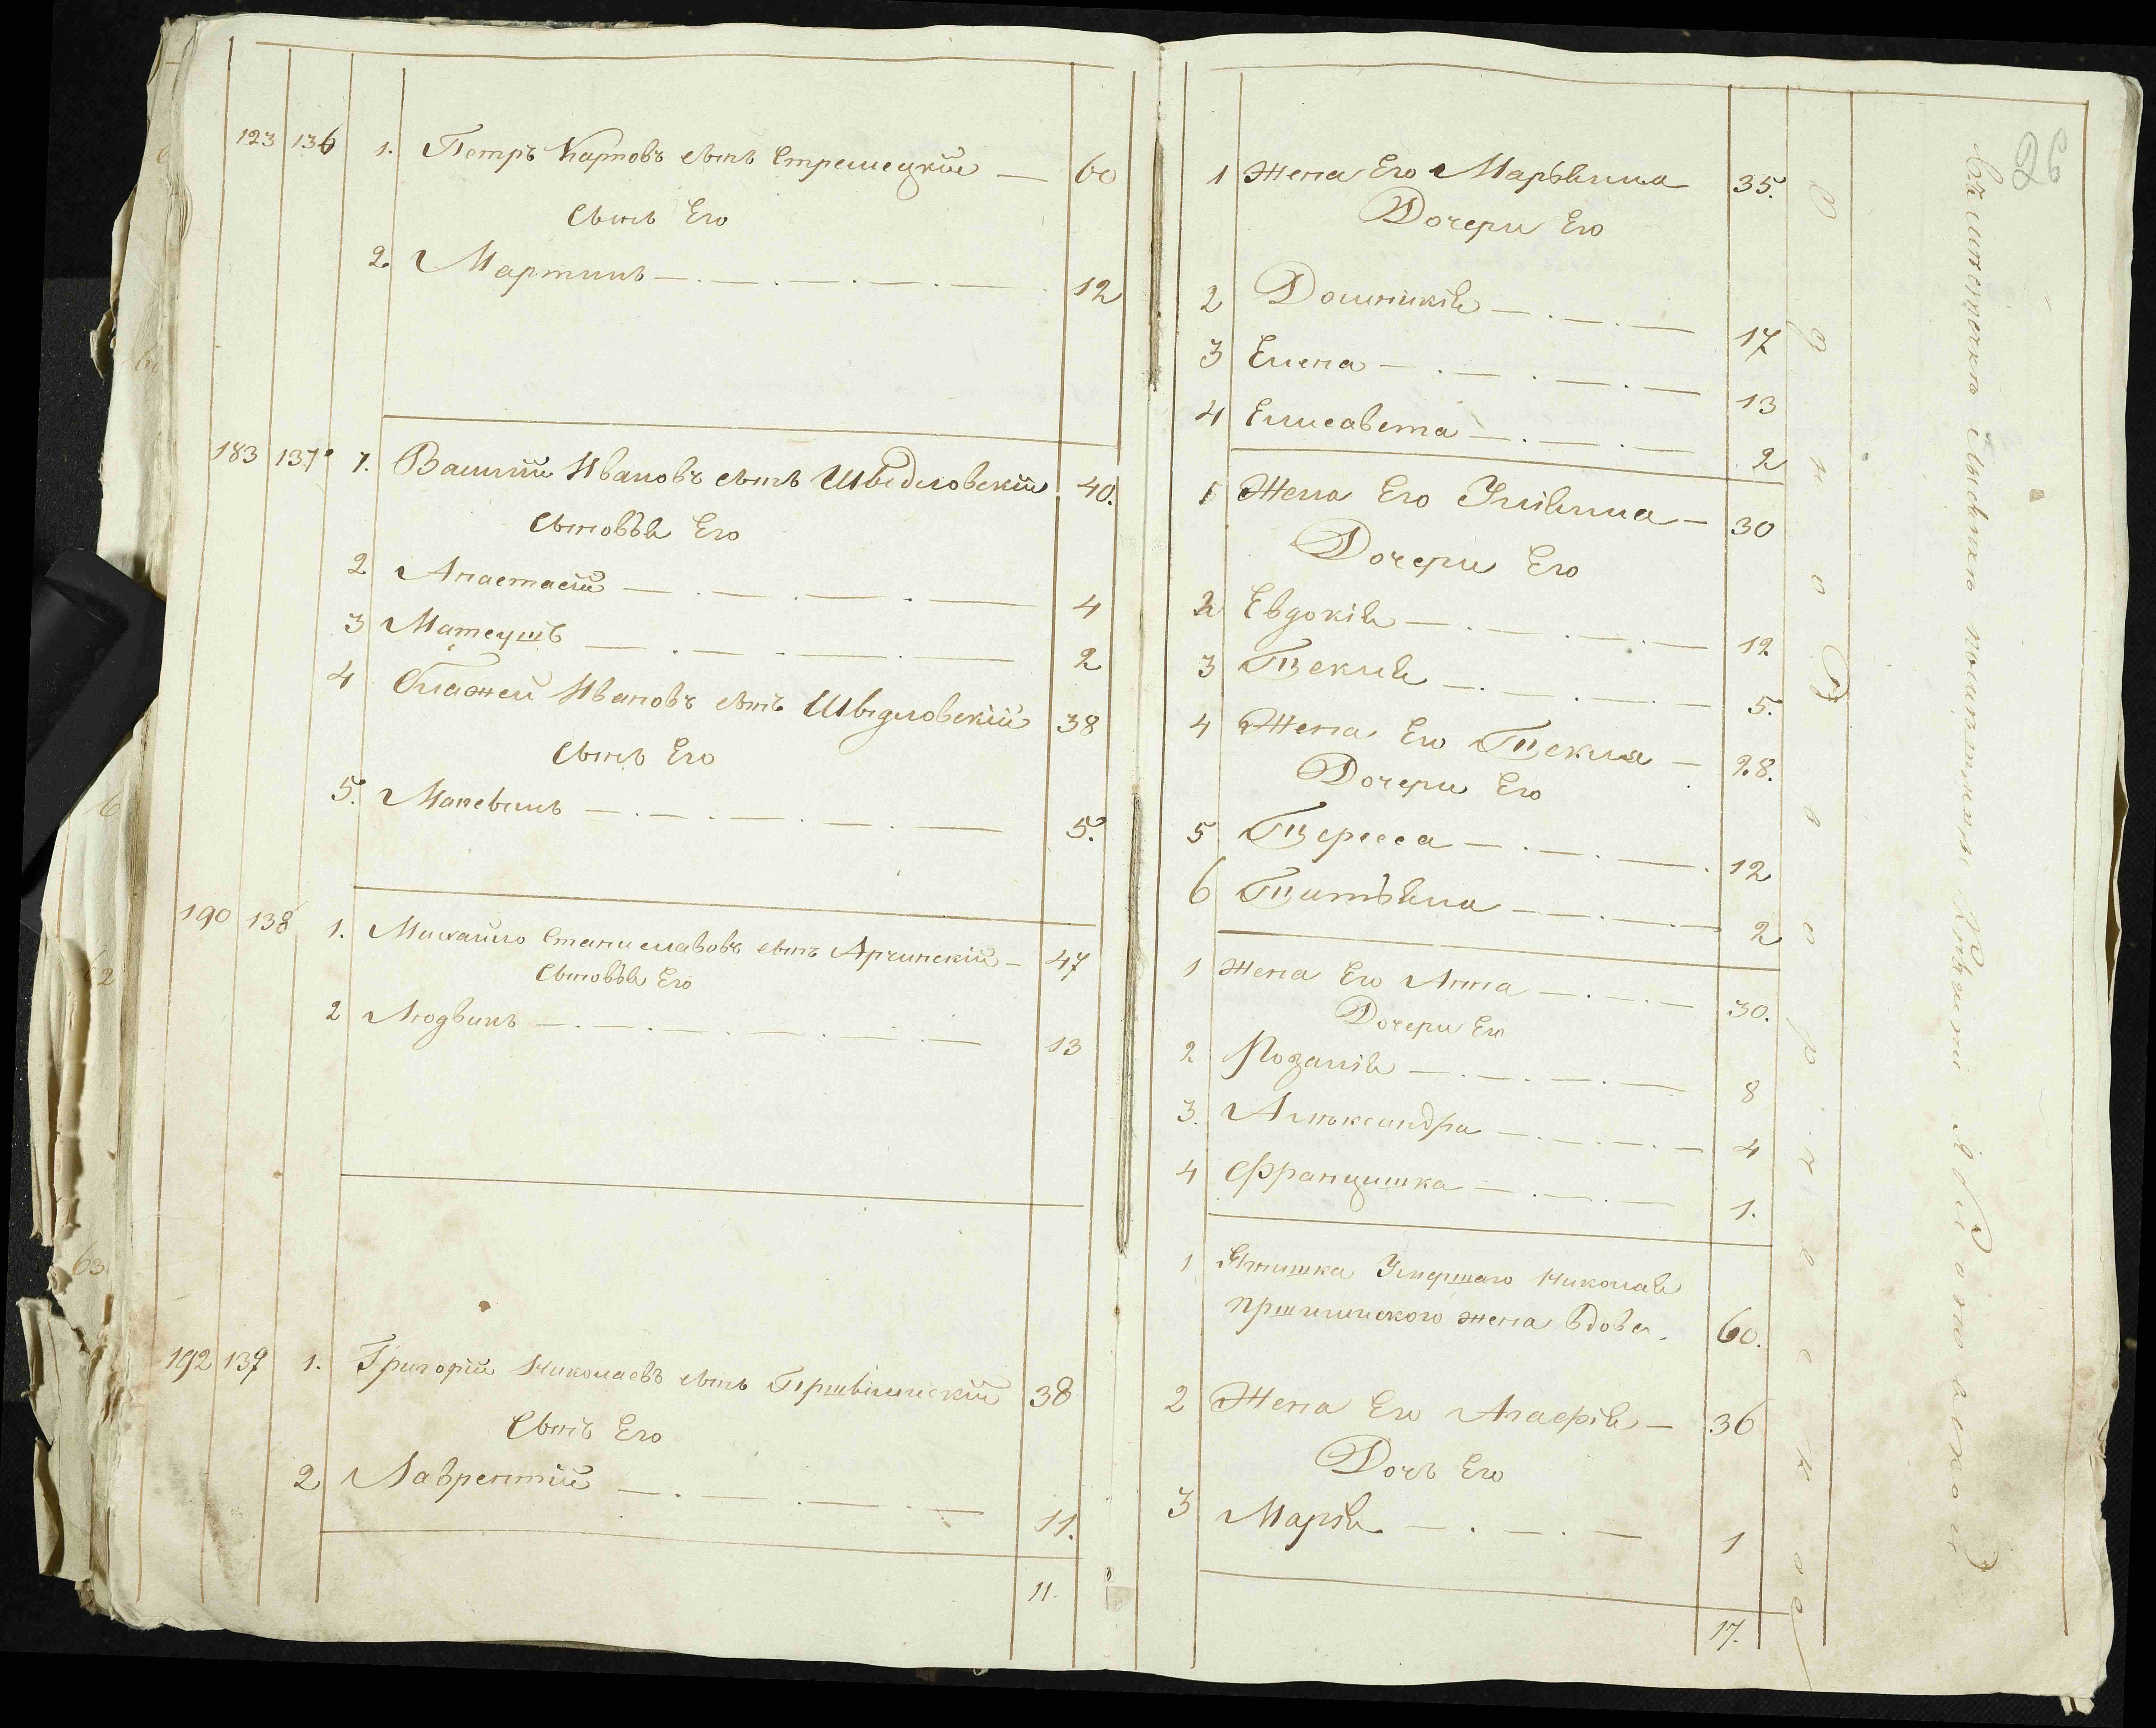 123 136 1. Петръ Карповъ сынъ Стрешецкій — 60
Сынъ Его
2. Мартинъ — 12
183 137 1. Василій Ивановъ сынъ Швѣдловскій 40.
Сыновья Его
2 Анастасій — 4
3 Матеушъ — 2
4 Блажей Ивановъ сынъ Швѣдловскій 38
Сынъ Его
5. — 5.
190 138 1. Михайло Станиславовъ сынъ Ярчинскій — 47
Сыновья Его
2 Людвикъ — 13
192 139 1. Григорій Николаевъ сынъ 38
Сынъ Его
2 Лаврентій — 11.
11.
26
1 Жена Его Марьянна 35.
Дочери Его
2 Домникія — 17
3 Елена — 13
4 Елисавета — 2
1 Жена Его Уліянна — 30
Дочери Его
2 Евдокія — 12
3 Текля — 5.
4 Жена Его Текля — 28.
Дочери Его
5 Тересса — 12
6 Татьяна — 2
1 Жена Его Анна — 30.
Дочери Его
2 Розалія — 8
3. Алѣксандра — 4
4 Францишка — 1.
1 Умершаго Николая
жена вдова. 60.
2 Жена Его Агафія — 36
Дочь Его
3 Марія — 1
17.